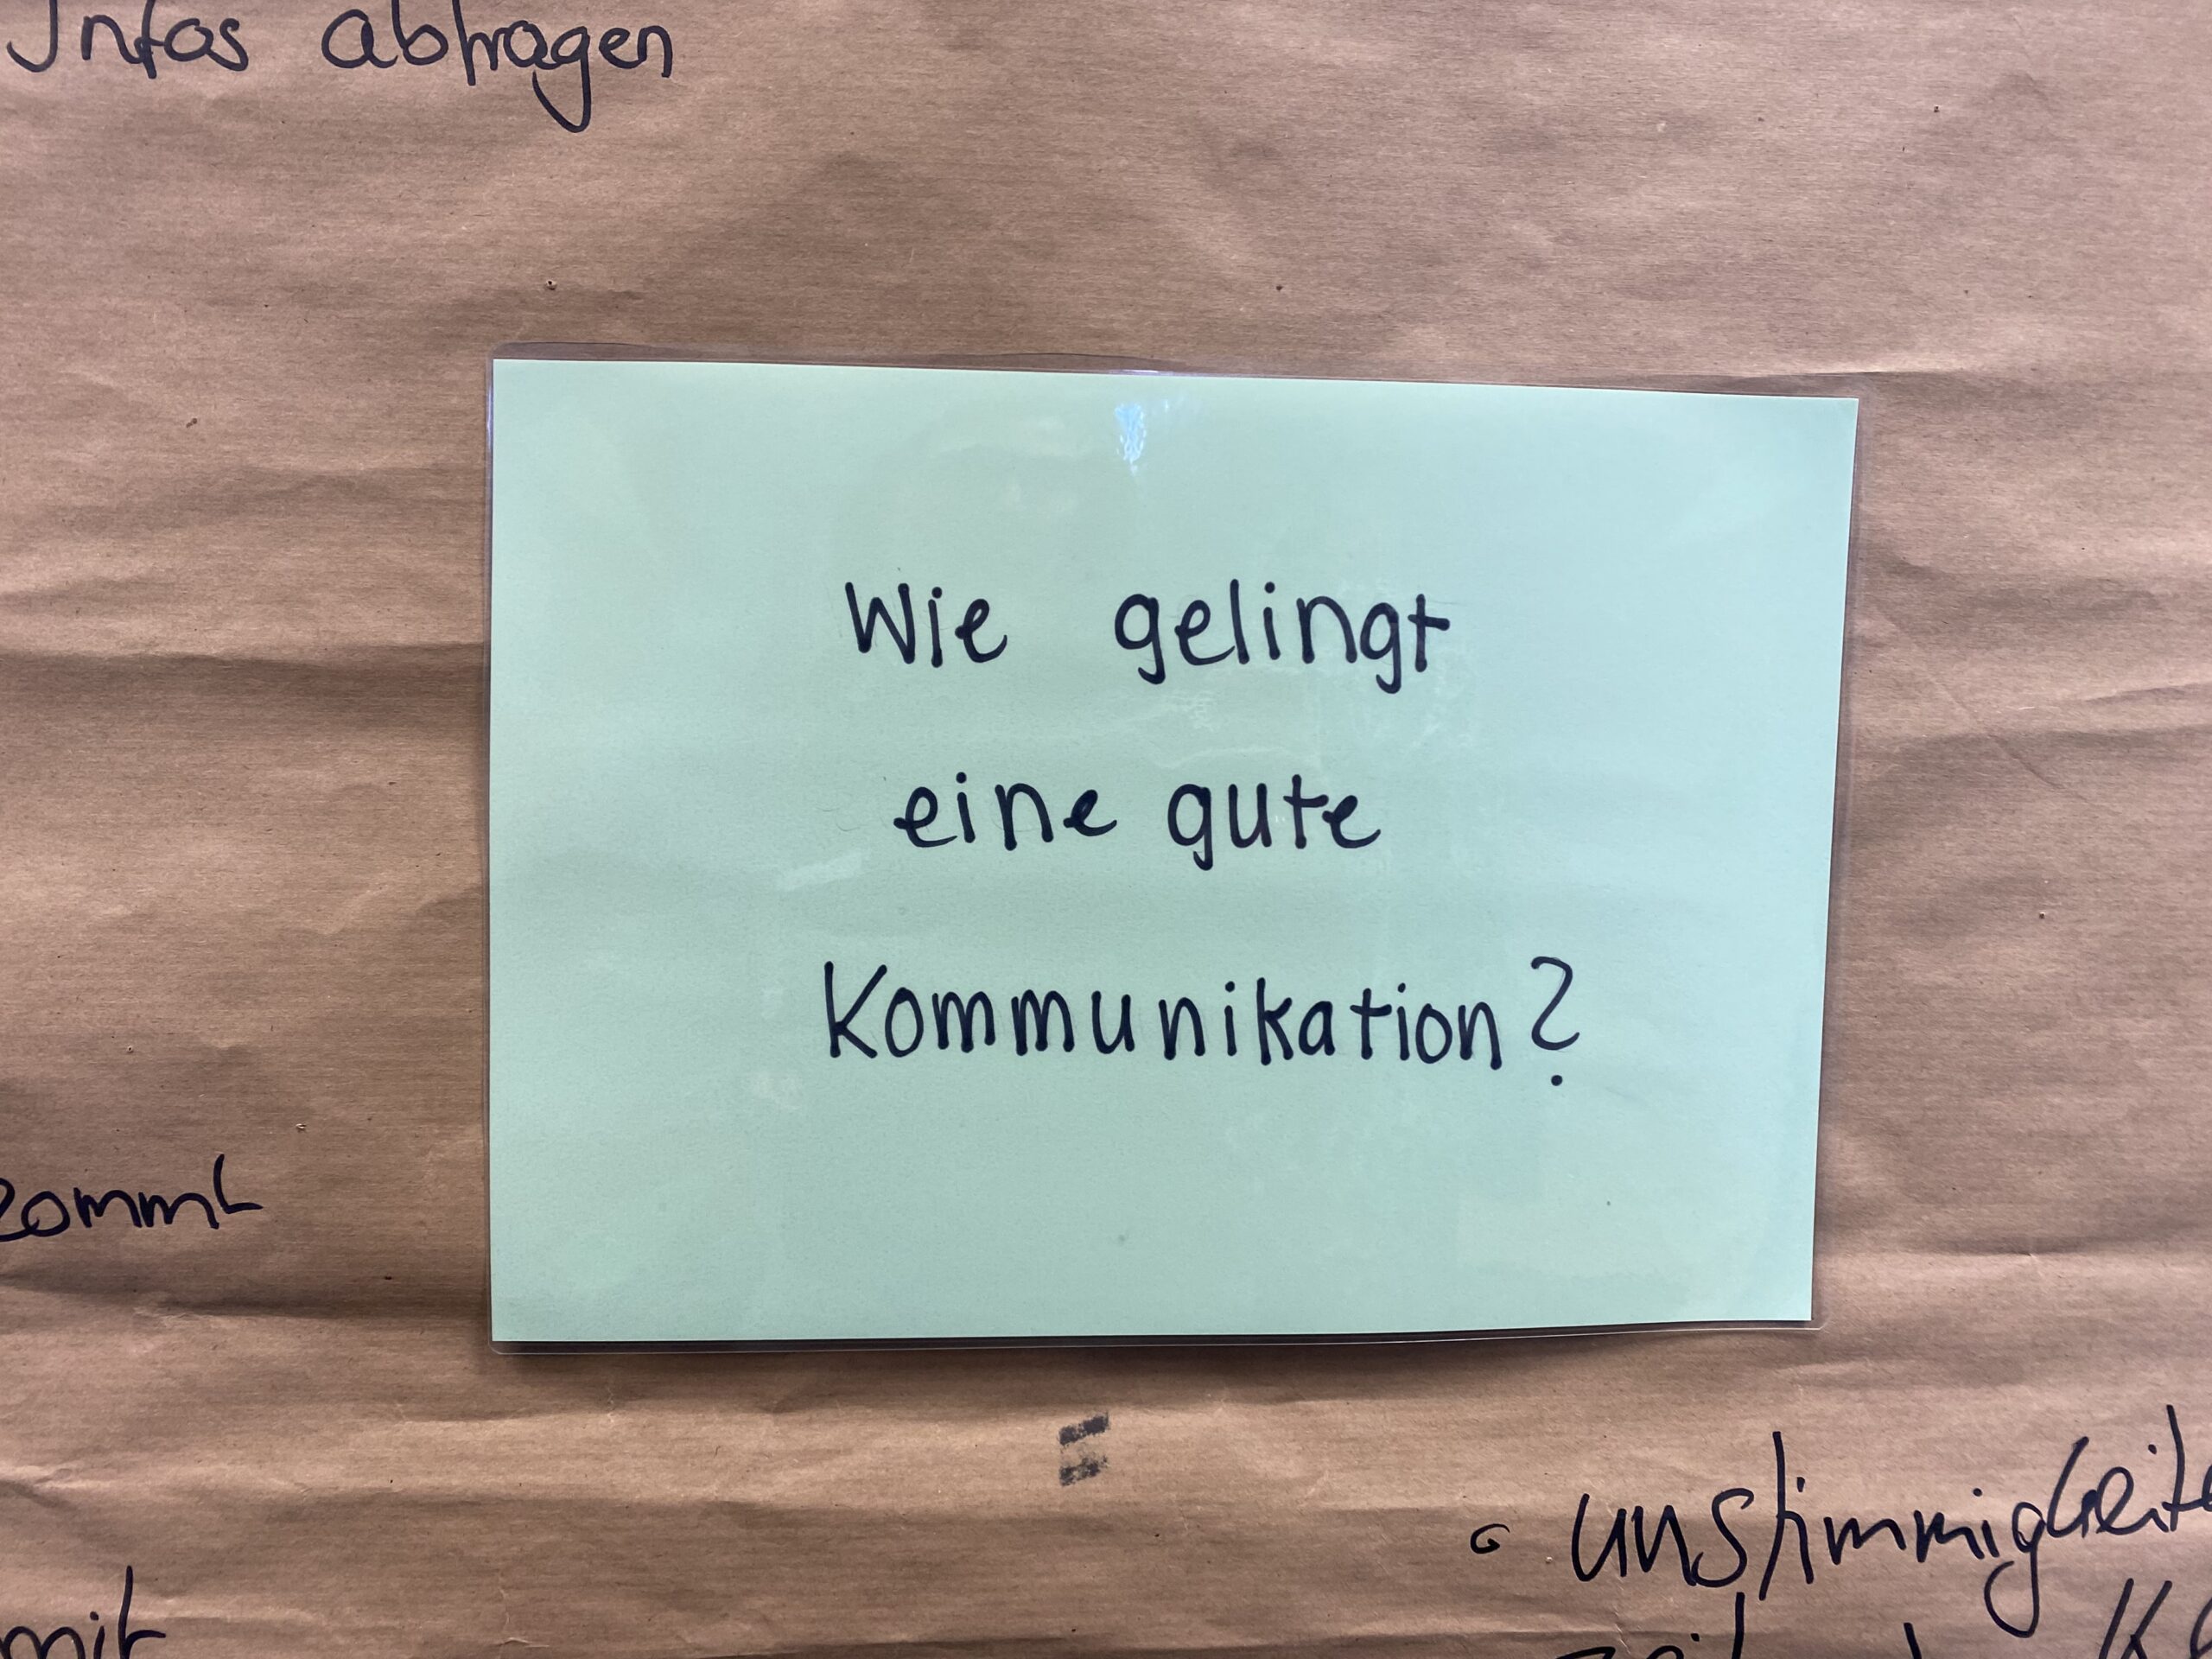 Infos abfragen
Wie gelingt
eine gute
Kommunikation?
kommt
unstimmigkeite
mit